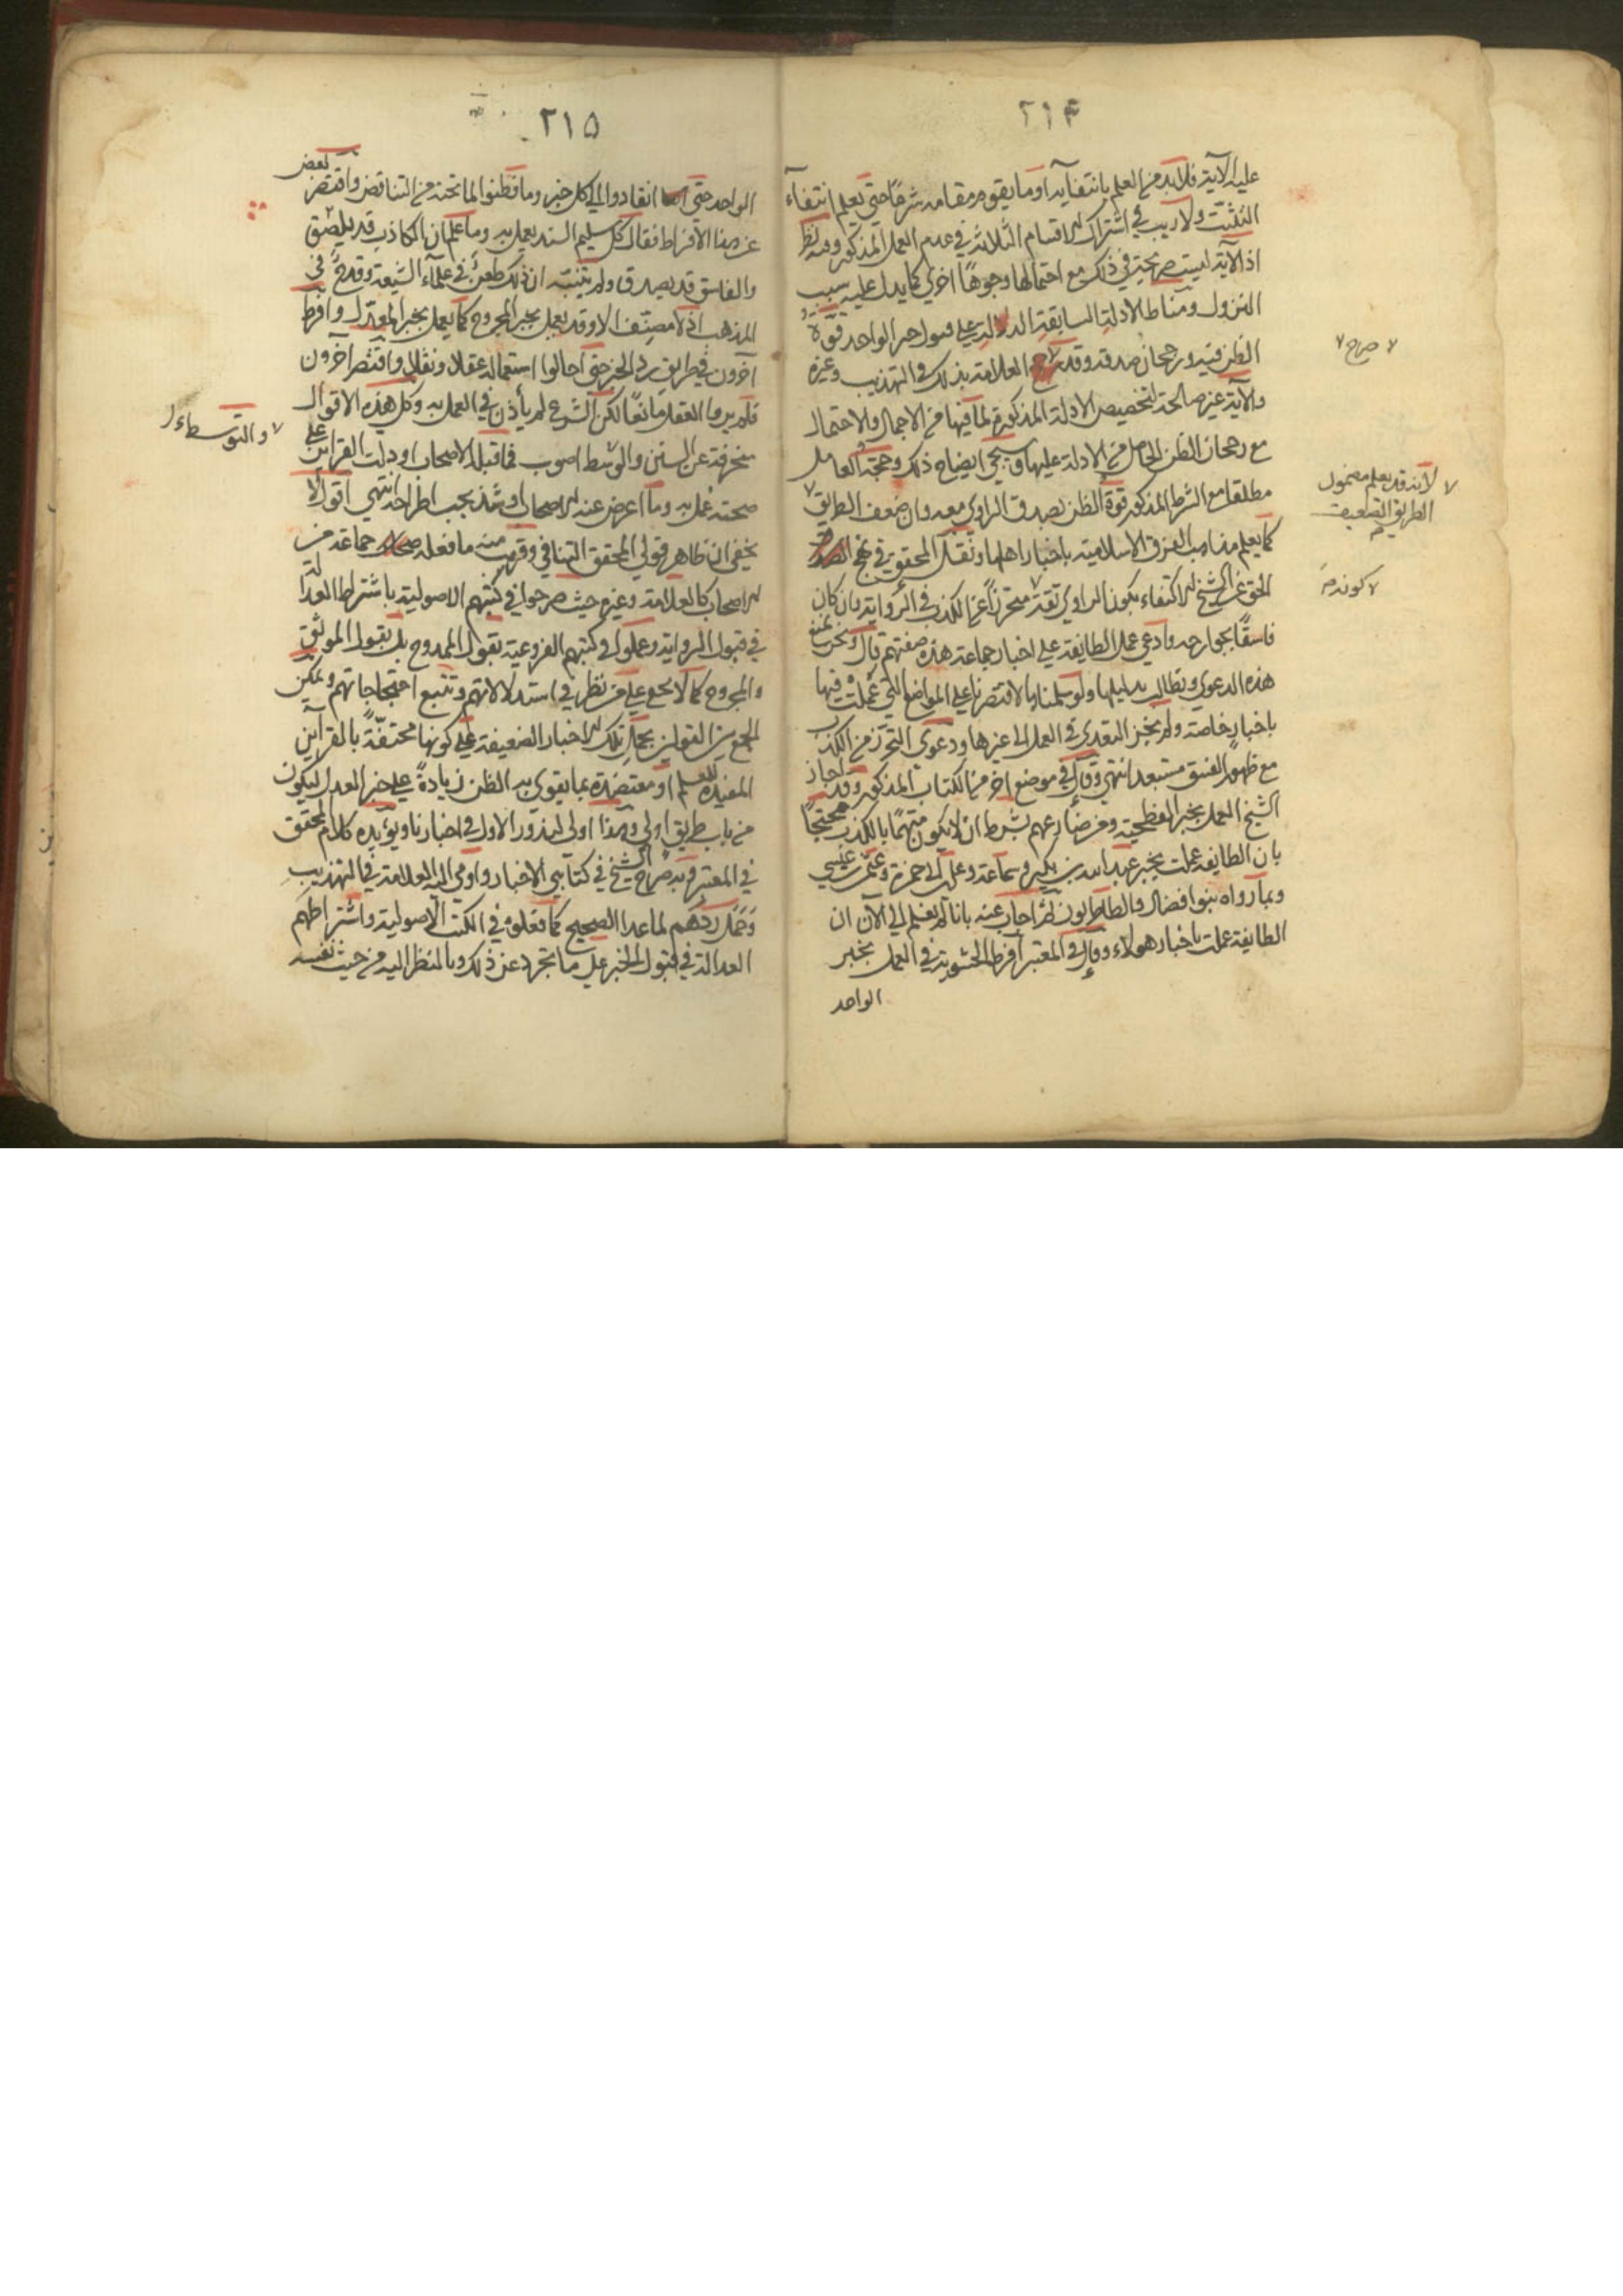 ٢١۴
عليه الآية فلابد من العلم بانتفائه او ما يقوم مقامه شرعًا حتى يعلم انتفاء
التثبت ولا ريب في اشتراك الاقسام الثلاثة في عدم العمل المذكور وفيه نظر
اذ الآية ليست صريحة في ذلك مع احتمالها وجوهًا اخرى كما يدل عليه سبب
النزول ومناط الادلة السابقة الدالة على قبول خبر الواحد قوّة
الظن فيه ورجحان صدقه وقد العلامة بذلك في التهذيب وغيره
صرح
والآية غير صالحة لتخصيص الادلة المذكورة لما فيها من الاجمال والاحتمال
مع رجحان الظن الحاصل من الادلة عليها وسيجئ ايضاح ذلك وحجة العامل
مطلقا مع الشرط المذكور قوة الظن بصدق الراوي معه وان ضعف الطريق
لانه قد يعلم مضمول
الطريق الضعيف
كما يعلم مذاهب الفرق الاسلامية باخبار اهلها ونقل المحقق في نهج
الحق عن الشيخ الاكتفاء بكون الراوي ثقة متحرزًا عن الكذب في الرواية وان كان
كونه
فاسقًا بجوارحه وادعى عمل الطايفة على اخبار جماعة هذه صفتهم قال ونحن نمنع
هذه الدعوى ونطالب بدليلها ولو سلمناها لاقتصرنا على المواضع التي عملت فيها
باخبار خاصة ولم يجز التعدي في العمل الى غيرها ودعوى التحرز من الكذب
مع ظهور الفسق مستبعد انتهى وقال في موضع اخر من الكتاب المذكور وقد اجاز
الشيخ العمل بخبر الفطحية ومن ضارعهم بشرط ان لا يكون متهمًا بالكذب محتجًا
بان الطايفة عملت بخبر عبد الله بن بكير وسماعة وعلي بن ابي حمزة وعثمن بن عيسى
وبما رواه بنوا فضال والطاطريون ثم اجاب عنه بانا لم نعلم الى الآن ان
الطايفة عملت باخبار هولاء وقال في المعتبر افرط الحشوية في العمل بخبر
الواحد
٢١۵
الواحد حتى انقادوا الى كل خبر وما فطنوا لما تحته من التناقض واقتصر بعض
عن هذا الافراط فقال كل سليم السند يعمل به وما علم ان الكاذب قد يلصق
والفاسق قد يصدق ولم يتنبه ان ذلك طعن في علماء الشيعة وقدح في
المذهب اذ لا مصنّف الا وقد يعمل بخبر المجروح كما يعمل بخبر المعدل وافرط
آخرون في طريق رد الخبر حتى احالوا استعماله عقلا ونقلا واقتصر آخرون
فلم يروا العقل مانعًا لكن الشرع لم يأذن في العمل به وكل هذه الاقوال
منحرفة عن السنن والوسط اصوب فما قبله الاصحاب او دلت القراين على
والتوسط
صحته عمل به وما اعرض عنه الاصحاب او شذ يجب اطراحه انتهى اقول لا
يخفى ان ظاهر قولي المحقق التنافي وقريب منه ما فعله جماعة من
الاصحاب كالعلامة وغيره حيث صرحوا في كتبهم الاصولية باشتراط العدالة
في قبول الرواية وعملوا في كتبهم الفروعية بقول الممدوح بل بقول الموثق
والمجروح كما لا يخفى على من نظر في استدلالاتهم وتتبع احتجاجاتهم ويمكن
الجمع بين القولين بحمل تلك الاخبار الضعيفة على كونها محتفّة بالقراين
المفيدة للعلم او معتضدة بما يقوى به الظن زيادة على خبر العدل ليكون
من باب طريق اولى وهذا اولى لندور الاول في اخبارنا ويؤيده كلام المحقق
في المعتبر وبه صرح الشيخ في كتابي الاخبار واومى اليه العلامة في التهذيب
وحمل ردهم لما عدا الصحيح كما فعلوه في الكتب الاصولية واشتراطهم
العدالة في قبول الخبر على ما تجرد عن ذلك وبالنظر اليه من حيث نفسه